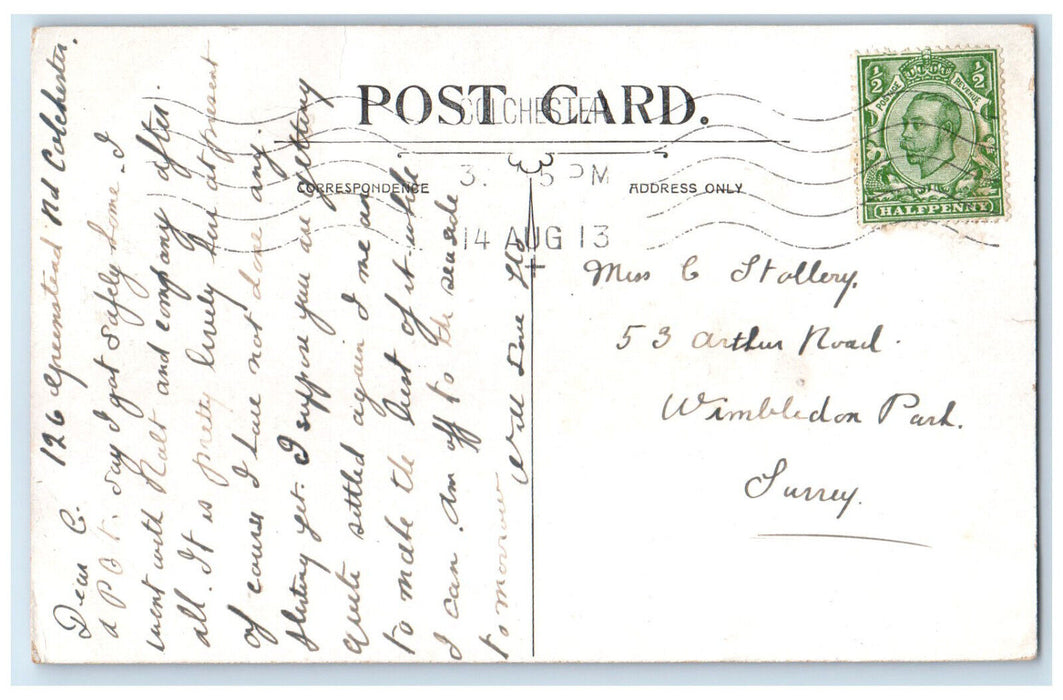 POST CARD.
COLCHESTER
CORRESPONDENCE
ADDRESS ONLY
5 PM
14 AUG 13
½ ½
POSTAGE REVENUE
HALFPENNY
126 Greenstead Rd Colchester.
Dear C.
a P.C. to say I got safely home. I
went with and company after
all. It is pretty lively here at present
of course I have not done any
yet. I suppose you are getting
quite settled again I mean
to make the best of it while
I can. Am off to the sea side
to morrow
Will love
Miss C Stollery,
53 Arthur Road.
Wimbledon Park.
Surrey.